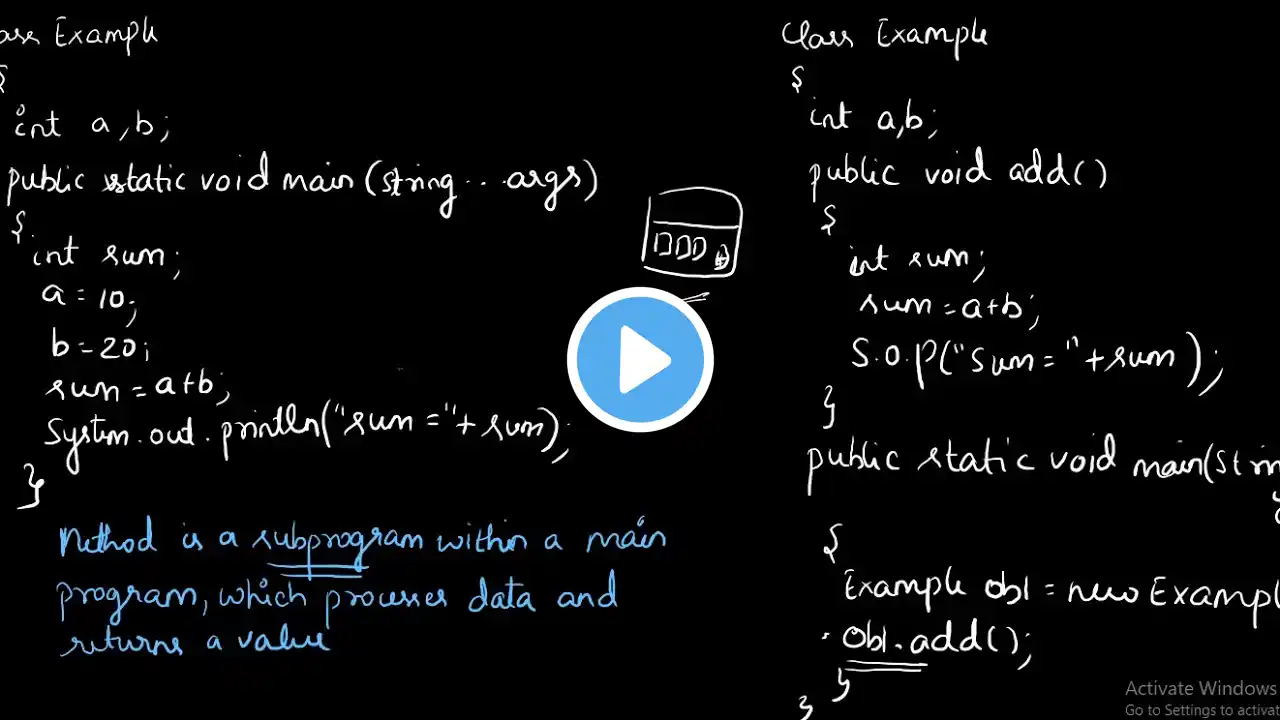 ass Example
{
int a,b;
public static void main(string...args)
{
int sum;
a=10;
b=20;
sum=a+b;
System.out.println("sum="+sum);
}
Method is a subprogram within a main
program, which processes data and
returns a value
Class Example
{
int a,b;
public void add()
{
int sum;
sum=a+b;
S.O.P("Sum="+sum);
}
public static void main(Strin
{
Example ob1=new Exampl
ob1.add();
}
}
Activate Windows
Go to Settings to activat